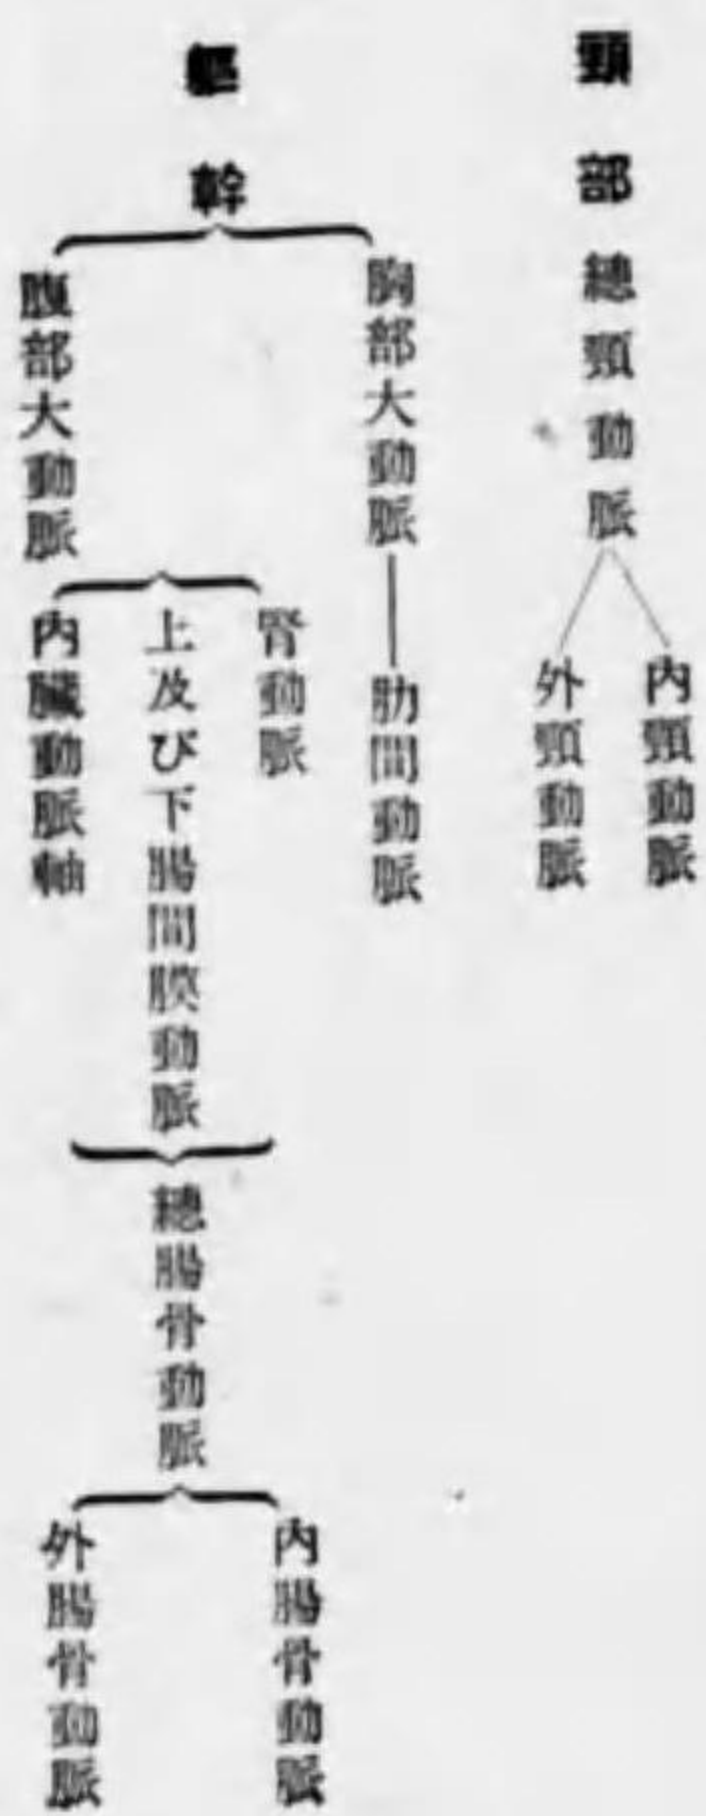 頸部
總頸動脈
內頸動脈
外頸動脈
軀幹
胸部大動脈
肋間動脈
腹部大動脈
腎動脈
上及び下腸間膜動脈
內臟動脈軸
總腸骨動脈
內腸骨動脈
外腸骨動脈